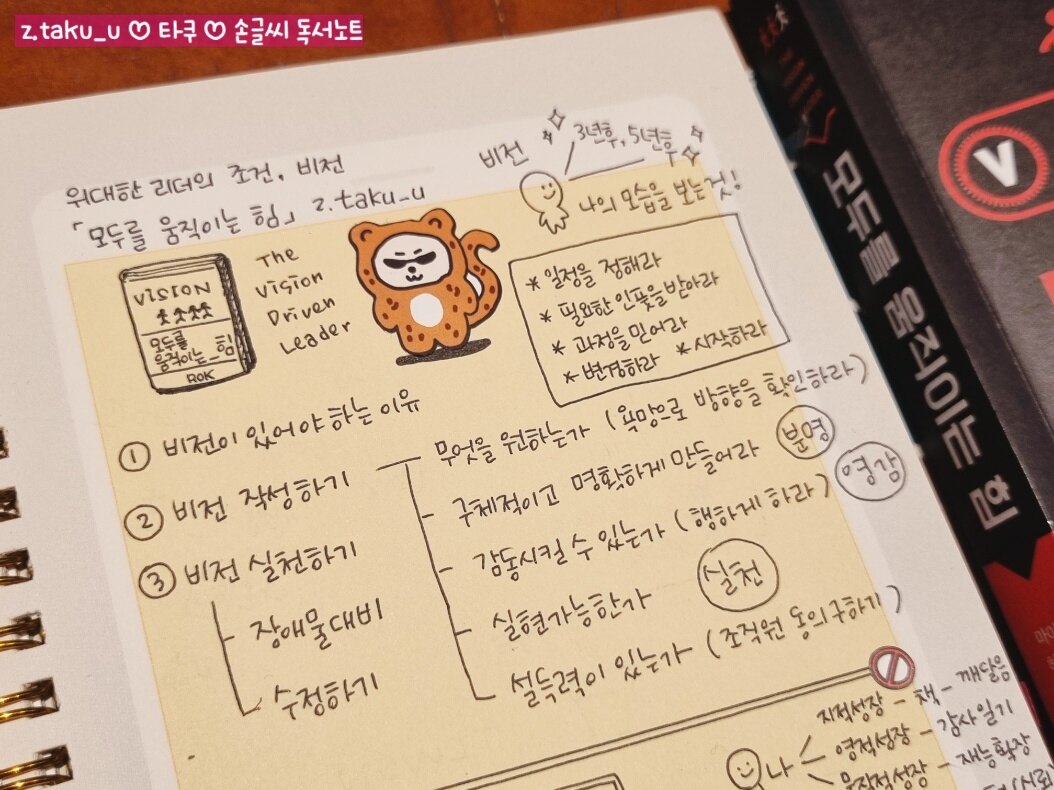 z.taku_u ♡ 타쿠 ♡ 손글씨 독서노트
위대한 리더의 조건, 비전
「모두를 움직이는 힘」 z.taku_u
비전
3년후, 5년후
나의 모습을 보는것!
VISION
모두를
움직이는_힘
ROK
The
Vision
Driven
Leader
* 일정을 정해라
* 필요한 인풋을 받아라
* 과정을 믿어라
* 변경하라 * 시작하라
① 비전이 있어야 하는 이유
② 비전 작성하기
무엇을 원하는가 (욕망으로 방향을 확인하라)
구체적이고 명확하게 만들어라 분명
감동시킬 수 있는가 (행하게 하라) 영감
실현가능한가 실천
설득력이 있는가 (조직원 동의구하기)
③ 비전 실천하기
장애물대비
수정하기
나
지적성장 - 책 - 깨달음
영적성장 - 감사일기
움직적성장 - 재능확장
모두를 움직이는 힘
V